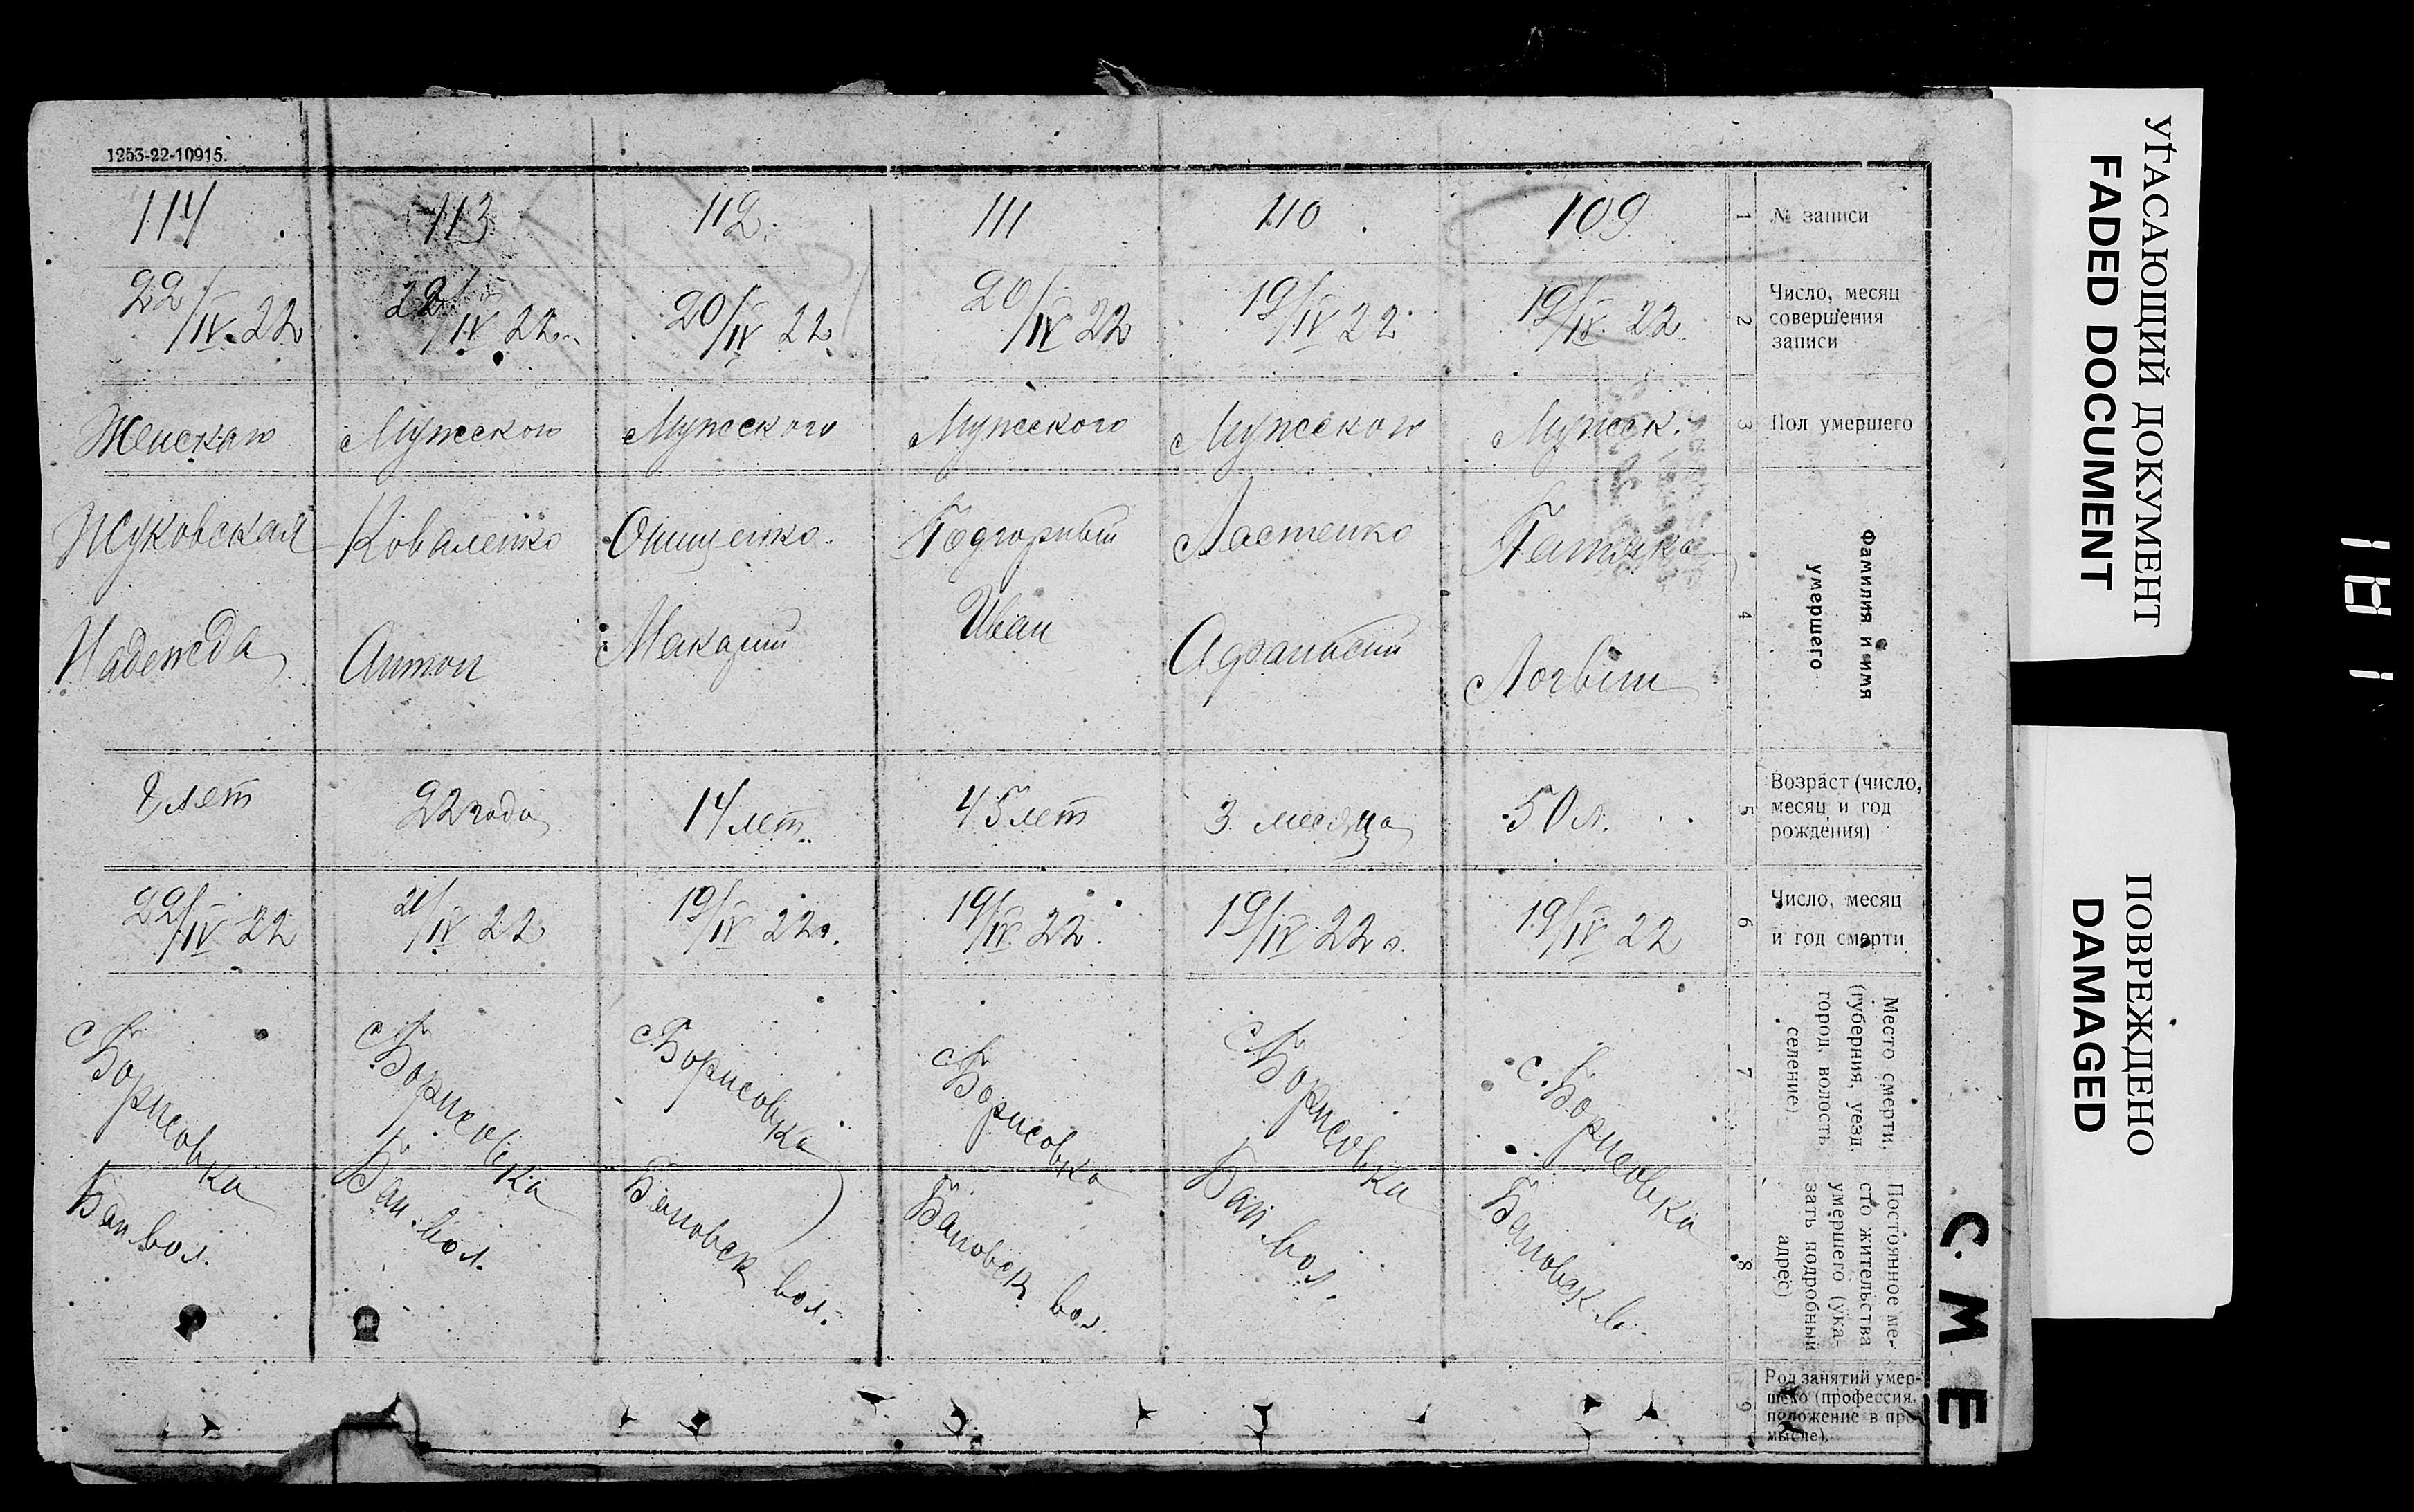 УГАСАЮЩИЙ ДОКУМЕНТ
FADED DOCUMENT
ПОВРЕЖДЕНО
DAMAGED
1811
СМЕ
1253-22-10915.
№ записи
1
109
110
111
112.
113
114
Число, месяц
совершения
записи
2
19/IV 22
19/IV 22
20/IV 22
20/IV 22
22/IV 22
22/IV 22
Пол умершего
3
Мужск.
Мужского
Мужского
Мужского
Мужского
Женскаго
Фамилия и имя
умершего
4
Логвин
Ластенко
Афанасий
Подгорный
Иван
Онищенко
Макарий
Коваленко
Антон
Жуковская
Надежда
Возраст (число,
месяц и год
рождения)
5
50 л.
3 месяца
45 лет
14 лет
22 года
лет
Число, месяц
и год смерти
6
19/IV 22
19/IV 22 г.
19/IV 22.
19/IV 22 г.
21/IV 22
22/IV 22
Место смерти,
(губерния, уезд,
город, волость,
селение)
7
с. Борисовка
с Борисовка
с Борисовка
с Борисовка
с Борисовка
с Борисовка
Постоянное ме-
сто жительства
умершего (ука-
зать подробный
адрес)
8
Бановск. в.
Бан. вол.
Бановск вол.
Бановск вол.
Бан. вол.
Бан вол.
Род занятий умер-
шего (профессия,
положение в про-
мысле).
9